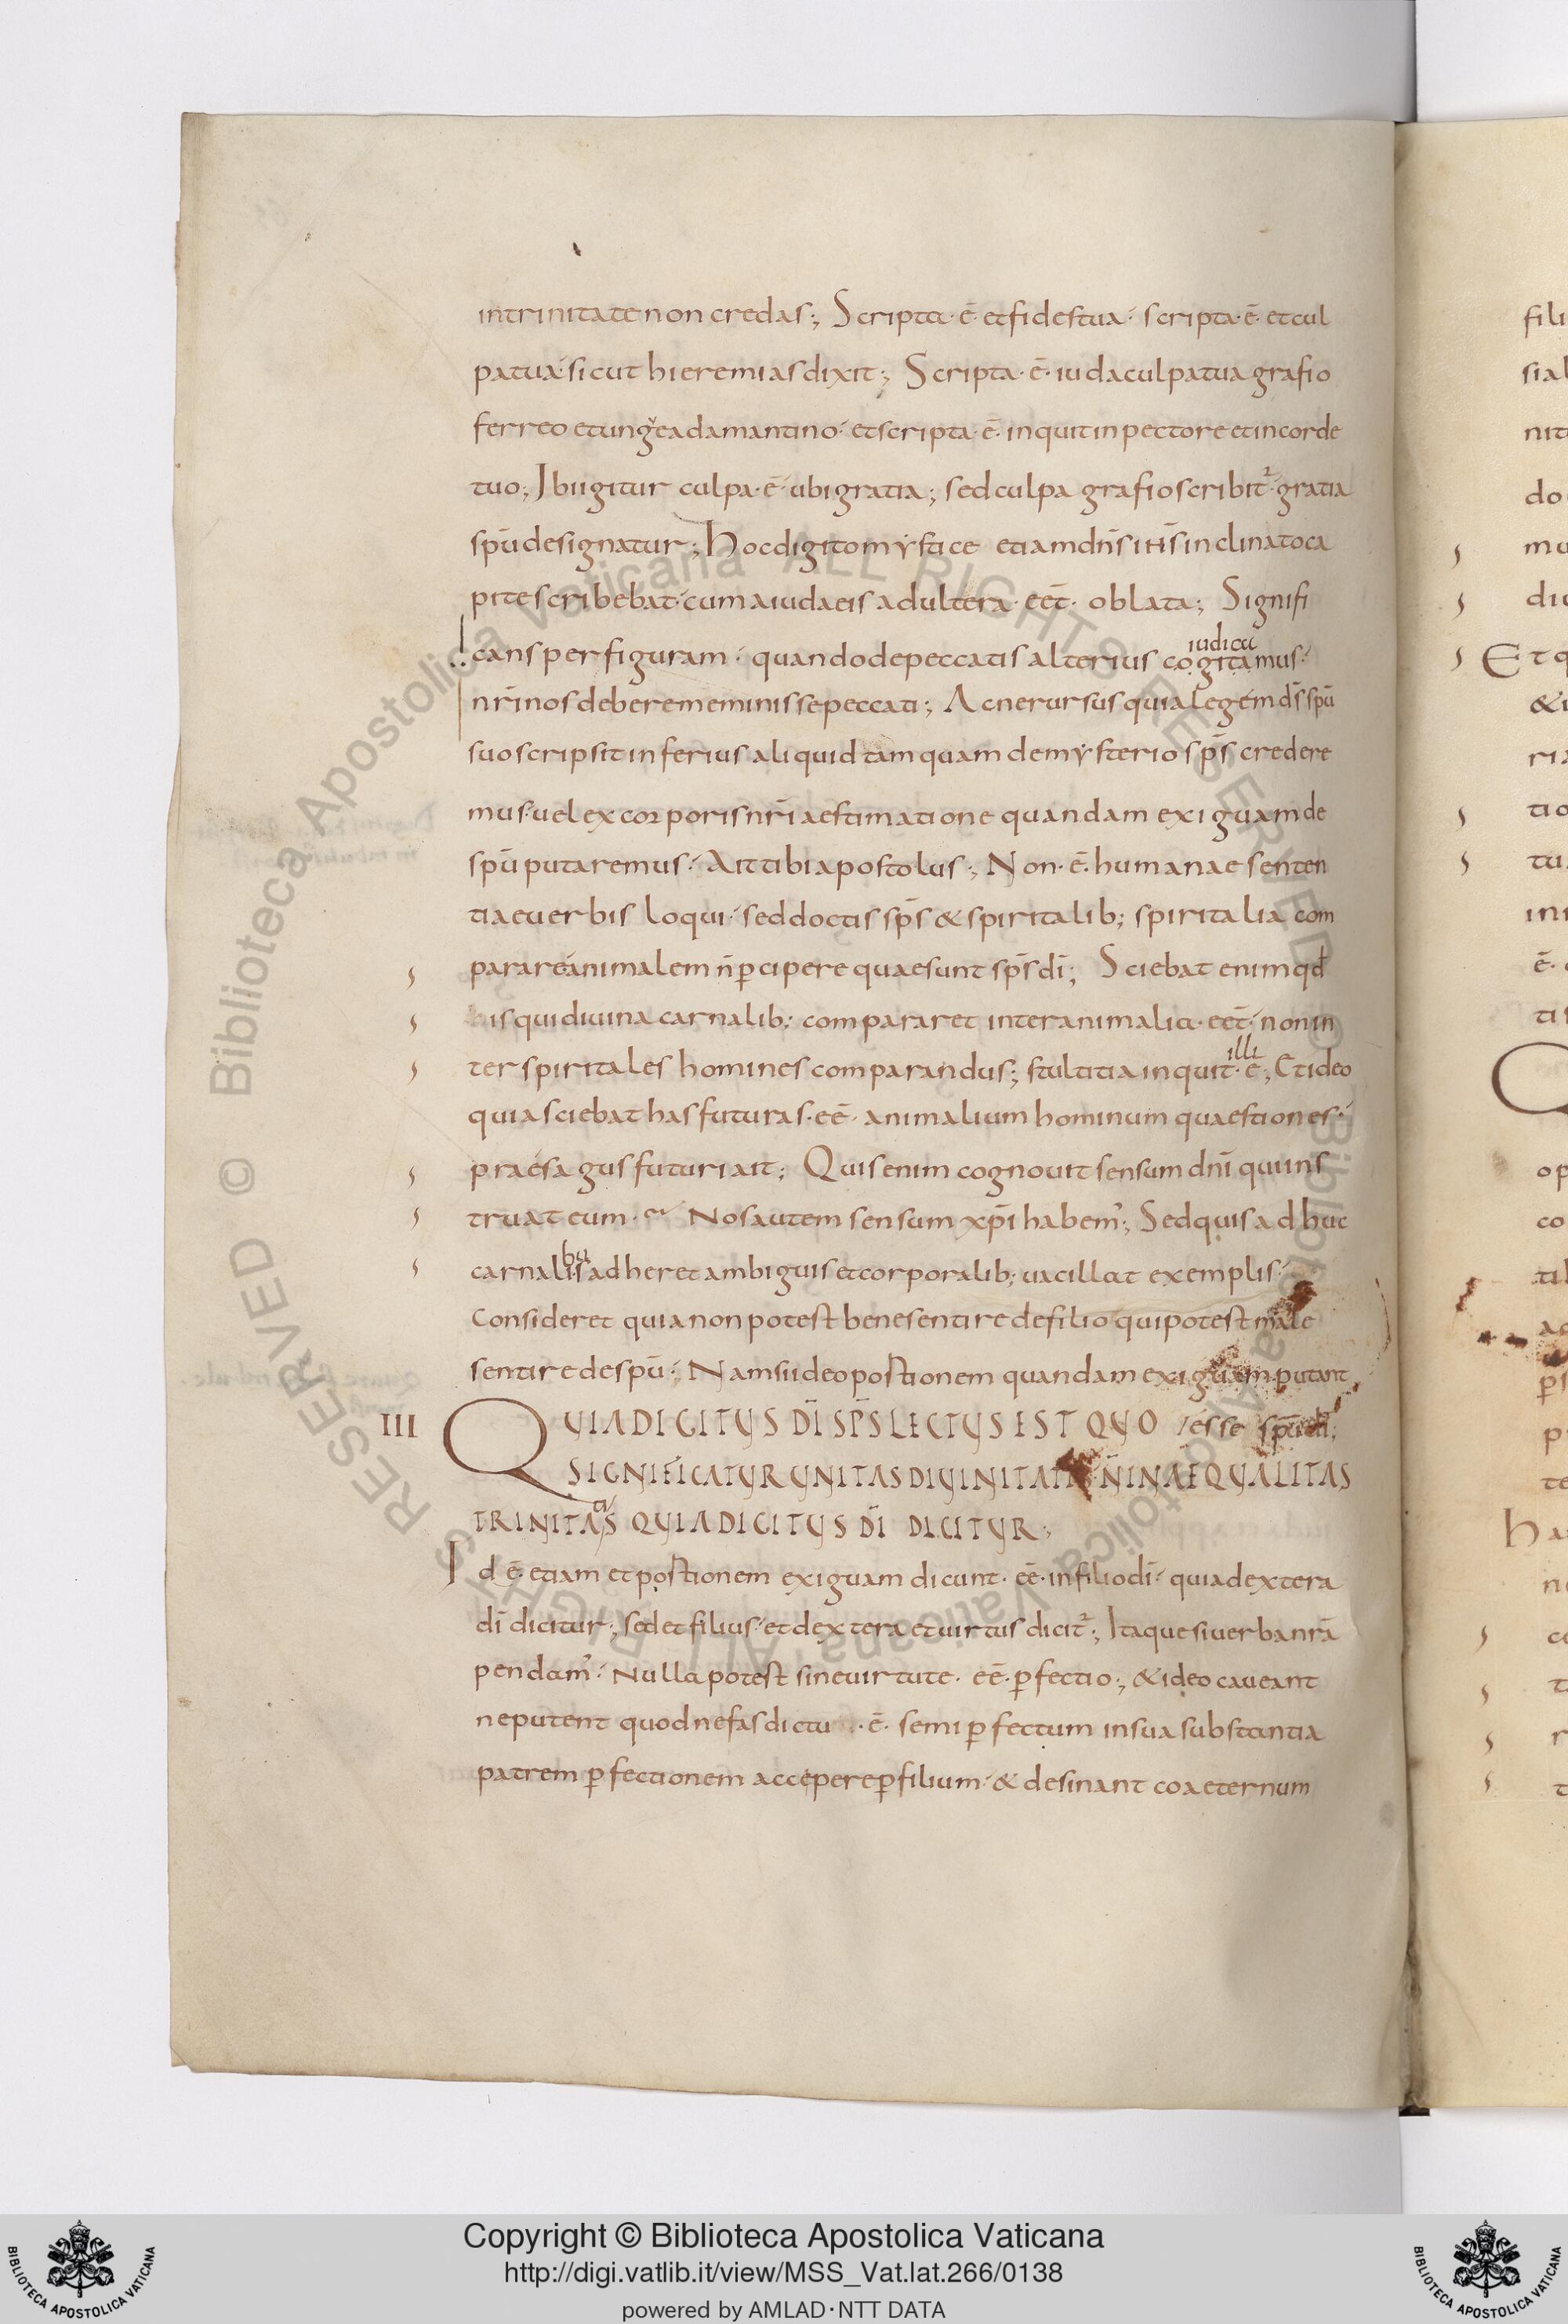 intrinitate non credas; Scripta·ē·et fides tua· scripta·ē·et cul
pa tua· sicut hieremias dixit; Scripta·ē·iuda culpa tua grafio
ferreo et unguea damantino· et scripta·ē·inquit in pectore et in corde
tuo; Ibi igitur culpa·ē·ubi gratia; sed culpa grafio scribit̄· gratia
spū designatur; Hoc digito mystice etiam dn̄s ih̄s inclinato ca
pite scribebat· cum a iudaeis adultera·eēt·oblata; Signifi
cans per figuram· quando de peccatis alterius cogitamus·
iudica
nr̄i nos debere meminisse peccati; Ac ne rursus quia legem d̄s spū
suo scripsit inferius aliquid tamquam de mysterio sp̄s credere
mus· uel ex corporis nr̄i aestimatione quandam exiguam de
spū putaremus· Ait tibi apostolus; Non·ē·humanae senten
tiae uerbis loqui· sed doctis sp̄s & spiritalib; spiritalia com
parare animalem n̄ ꝑcipere quae sunt sp̄s dī; Sciebat enim qd̄
is qui diuina carnalib; compararet inter animalia·eēt·non in
ter spiritales homines comparandus; stultitia inquit·ē; Et ideo
illi
quia sciebat has futuras·eē·animalium hominum quaestiones·
praesagus futuri ait; Quis enim cognouit sensum dn̄i qui ins
truat eum· Nos autem sensum xp̄i habem'; Sed quis adhuc
carnalis adheret ambiguis et corporalib; uacillat exemplis·
bu
Consideret quia non potest bene sentire de filio qui potest male
sentire de spū; Nam si ideo postionem quandam exiguam putant
III QUIA DIGITUS DĪ SP̄S LECTUS EST QUO esse spūm dī;
SIGNIFICATUR UNITAS DIUINITATIS N̄ INAEQUALITAS
TRINITAS QUIA DIGITUS DĪ DICITUR;
ti
Id ē·etiam et postionem exiguam dicunt·eē·in filio dī· quia dextera
dī dicitur; sed et filius· et dextera et uirtus dicit̄; Itaque si uerba nr̄a
pendam'· Nulla potest sine uirtute·eē·ꝑfectio; & ideo caueant
ne putent quod nefas dictu·ē·semiꝑfectum in sua substantia
patrem ꝑfectionem accepere ꝑ filium· & desinant coaeternum
fili
sial
nit
do
mu
diu
Et q
&i
ria
tio
tu
ini
ē·
ti
Q
op
co
p
te
ha
n
t
r
© Biblioteca Apostolica Vaticana ALL RIGHTS RESERVED © Biblioteca Apostolica Vaticana ALL RIGHTS RESERVED
Copyright © Biblioteca Apostolica Vaticana
http://digi.vatlib.it/view/MSS_Vat.lat.266/0138
powered by AMLAD·NTT DATA
BIBLIOTECA APOSTOLICA VATICANA
BIBLIOTECA APOSTOLICA VATICANA